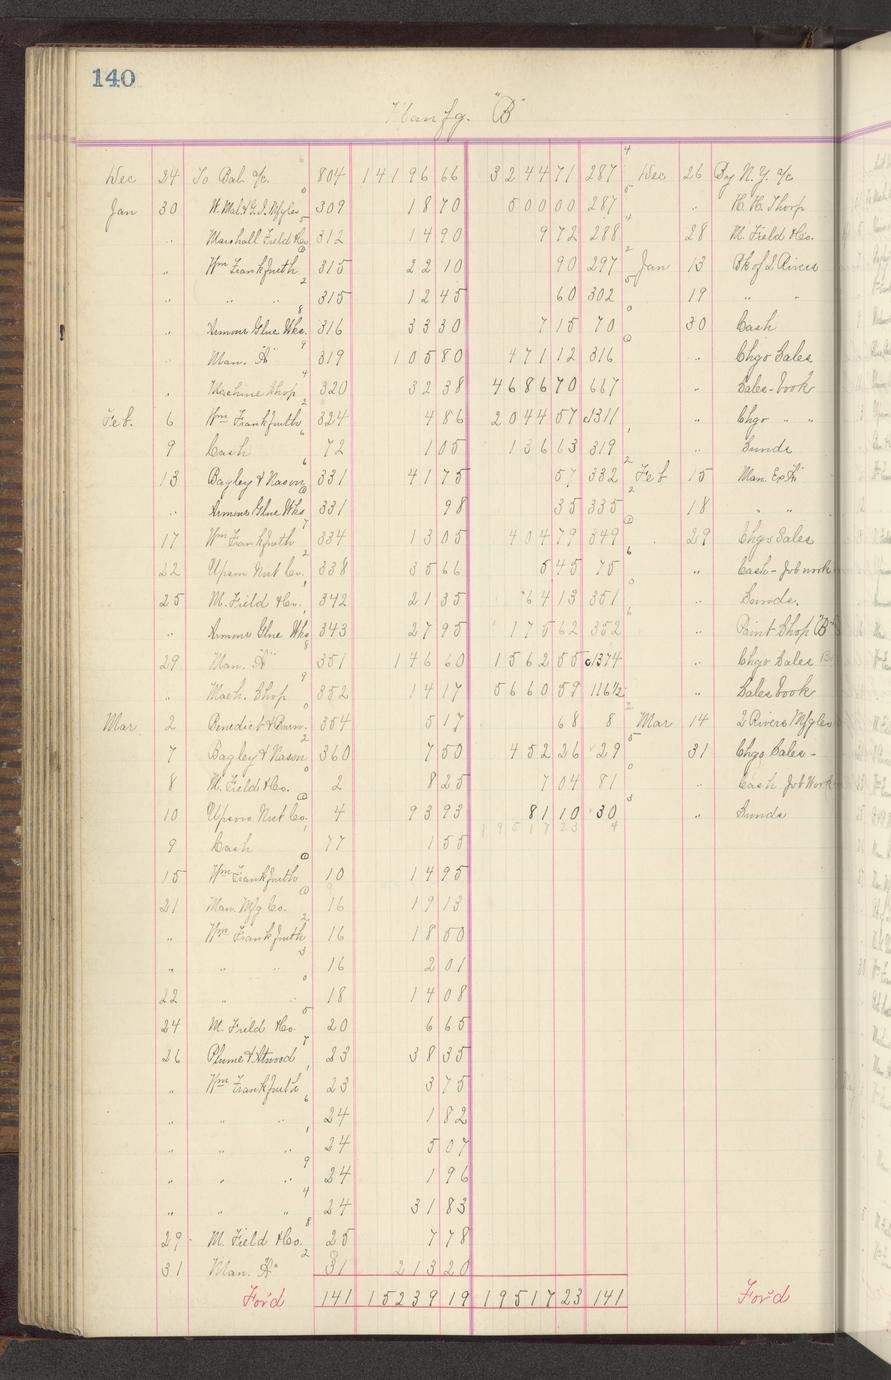 140
Manfg. "B"
Dec 24 To Bal. a/c. 804 14196 66 3244 71 287 Dec 26 By N.Y. a/c
Jan 30 309 18 70 500 00 287 " H. H. Thorp
" Marshall Field &Co 312 14 90 9 72 288 28 M. Field &Co.
" Wm Frankfurth 315 22 10 90 297 Jan 13 Bk of 2 Rivers
" " " 315 12 45 60 302 19 " "
" Armour Glue Wks. 316 33 30 7 15 70 30 Cash
" Man. "A" 319 105 80 471 12 316 " Chgo Sales
" Machine Shop 320 32 38 4686 70 667 " Sales-book
Feb. 6 Wm Frankfurth 324 4 86 2044 57 c1311 " Chgo " "
9 Cash 72 1 05 136 63 319 " Sunds
13 Bagley & Nason 331 41 75 57 332 Feb 15 Man. Ex "A"
" Armour Glue Wks 331 98 35 335 18 " "
17 Wm Frankfurth 334 13 05 404 79 349 " 29 Chgo Sales
22 Upson Nut Co. 338 35 66 5 45 75 " Cash - Job work
25 M. Field &Co. 342 21 35 64 13 351 " Sunds.
" Armour Glue Wks 343 27 95 175 62 352 " Paint Shop "B"
29 Man. "A" 351 146 60 1562 55 c1374 " Chgo Sales
" Mach. Shop 352 14 17 5660 59 116½ " Sales book
Mar 2 Benedict & Burn. 354 5 17 68 8 Mar 14 2 Rivers Mfg Co
7 Bagley & Nason 360 7 50 452 26 29 31 Chgo Sales -
8 M. Field &Co. 2 8 25 7 04 81 " Cash Job Work
10 Upson Nut Co. 4 93 93 81 10 30 " Sunds
9 Cash 77 1 55 19517 23
15 Wm Frankfurth 10 14 95
21 Man. Mfg Co. 16 19 13
" Wm Frankfurth 16 18 50
" " " 16 2 01
22 " " 18 14 08
24 M. Field &Co. 20 6 65
26 Plume & Atwood 23 38 35
" Wm Frankfurth 23 3 75
" " " 24 1 82
" " " 24 5 07
" " " 24 1 96
" " " 24 31 83
29 M. Field &Co. 25 7 78
31 Man. "A" 31 213 20
For'd 141 15239 19 19517 23 141 For'd